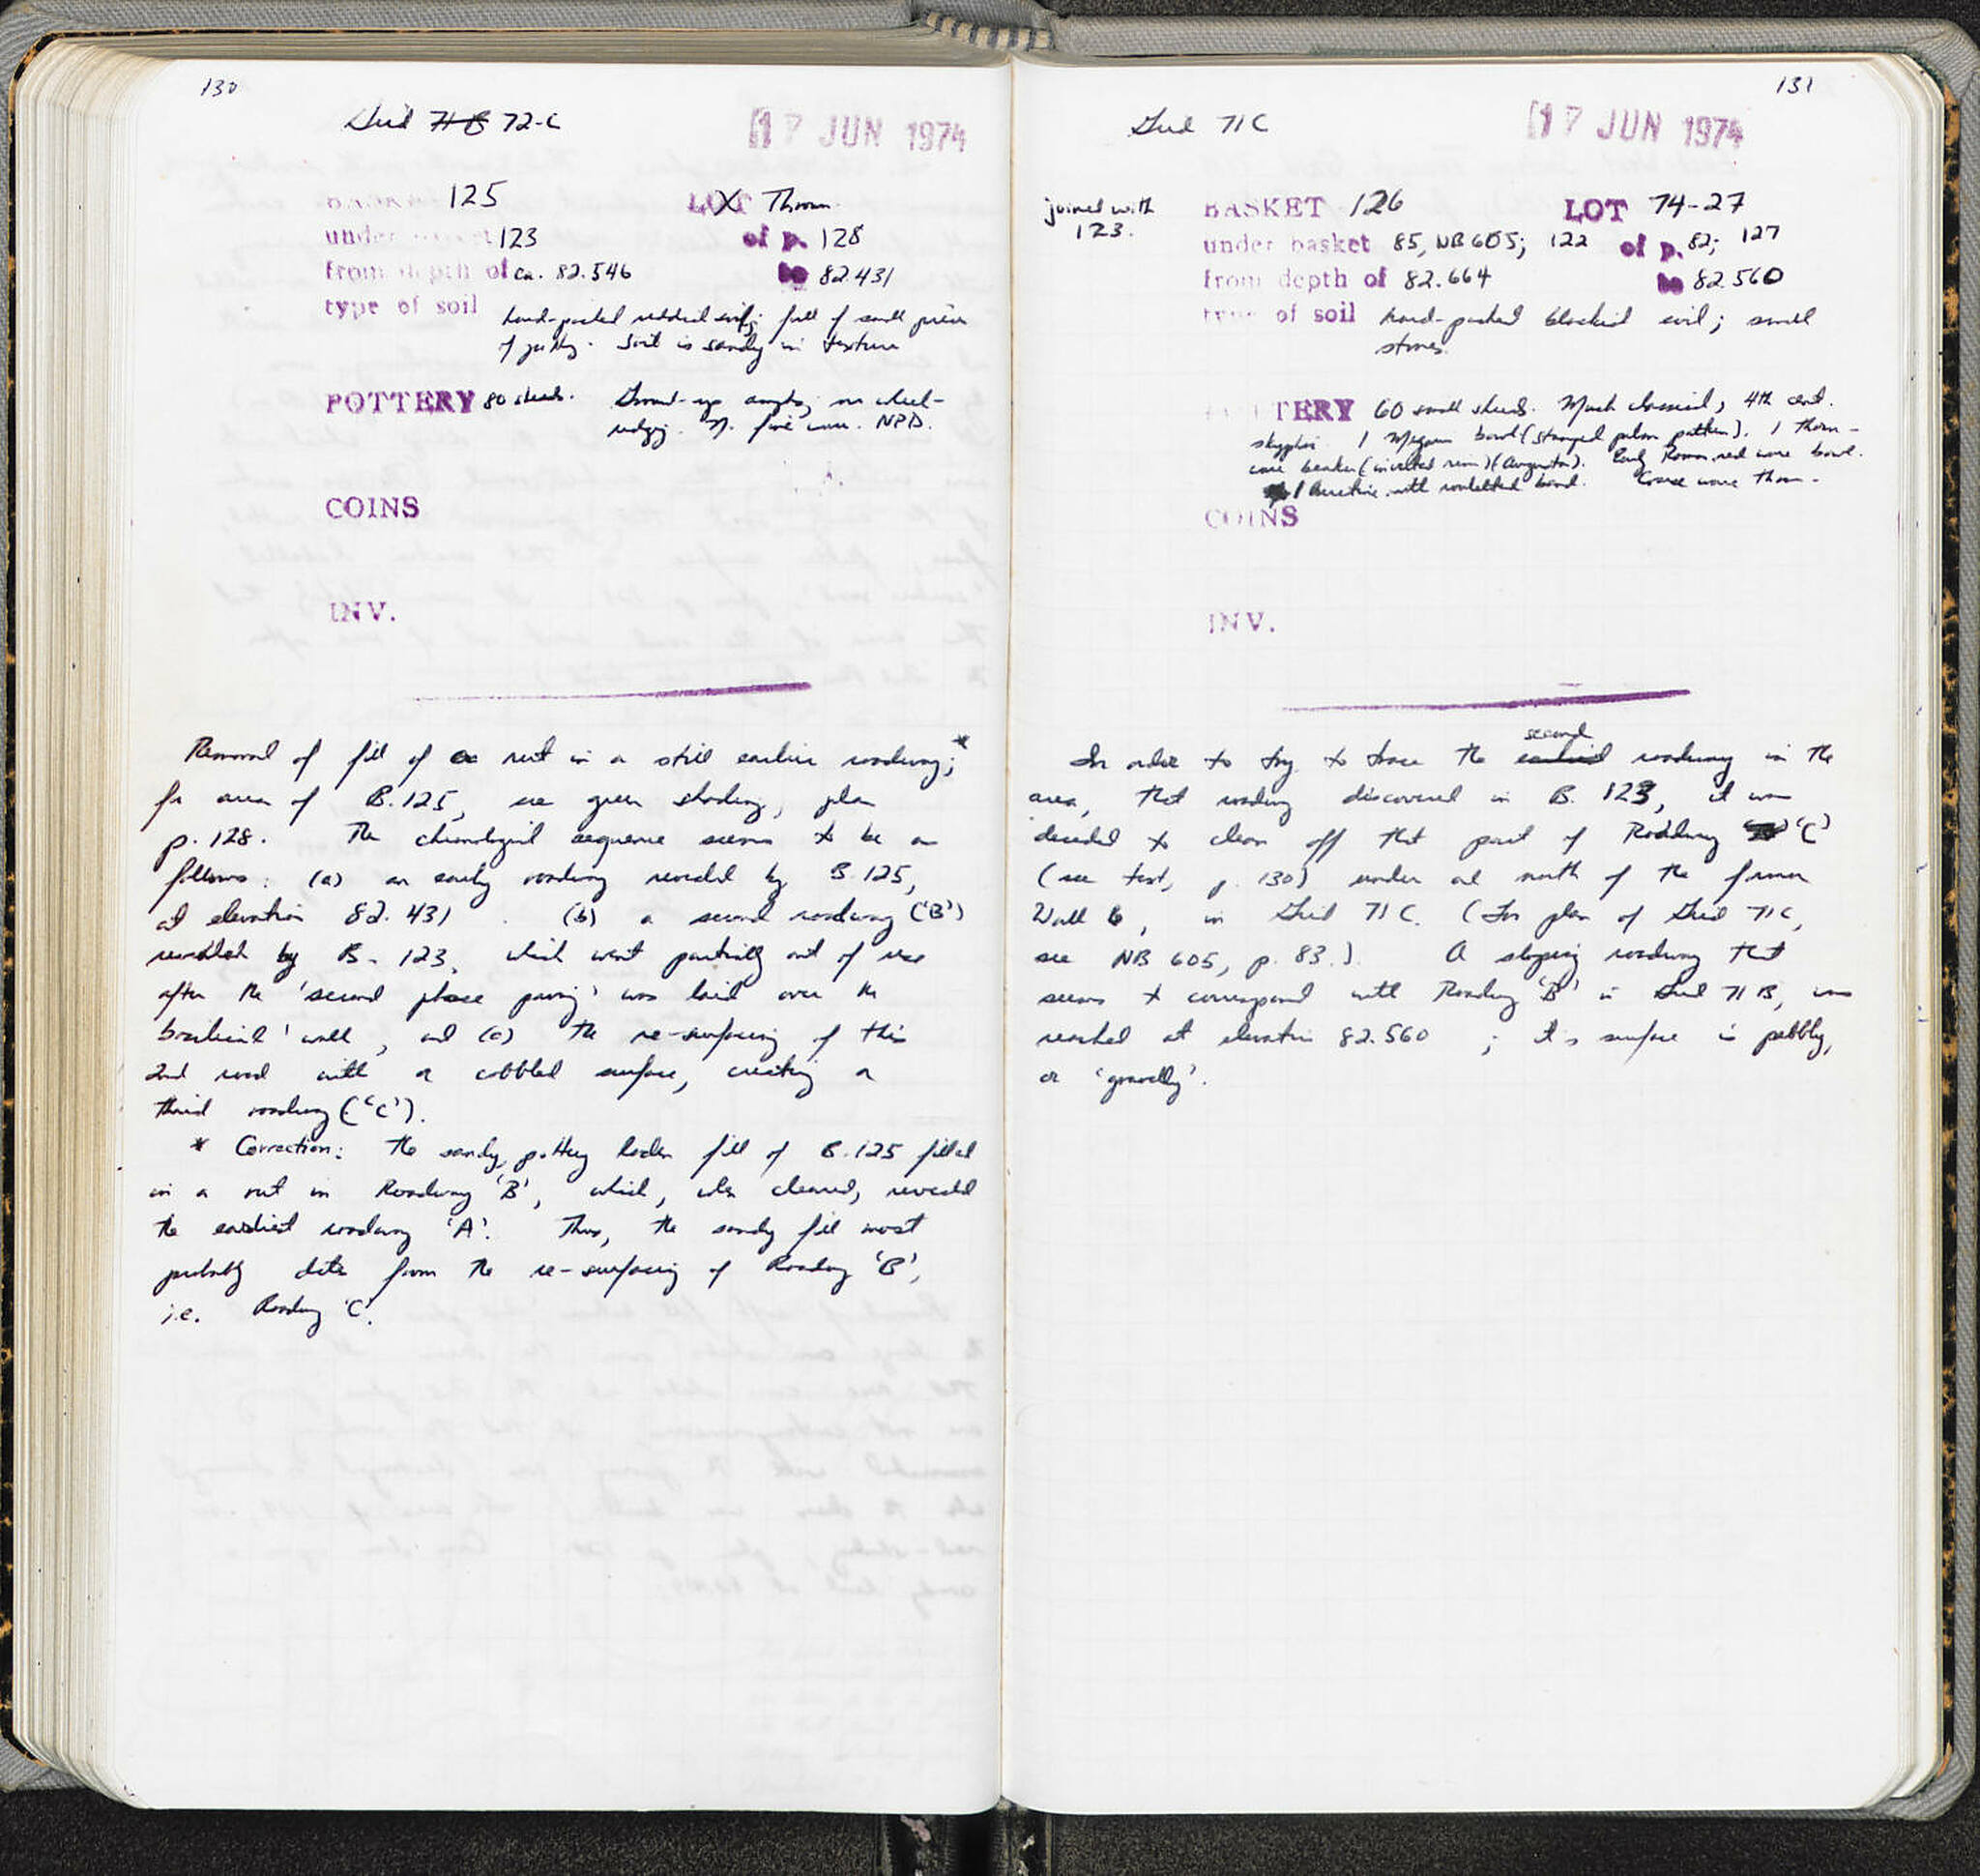 130
Grid 71-B 72-C
17 JUN 1974
BASKET 125
LOT Thrown.
under basket 123
of p. 128
from depth of ca. 82.546
to 82.431
type of soil hard-packed reddish soil; full of small pieces
of pottery. Soil is sandy in texture
POTTERY 80 sherds. Ground-up amphs, no wheel-
ridging. No fine ware. NPD.
COINS
INV.
Removal of fill of a rut in a still earlier roadway;*
for area of B.125, see green shading, plan
p. 128. The chronological sequence seems to be as
follows: (a) an early roadway revealed by B.125,
at elevation 82.431. (b) a second roadway ('B')
revealed by B. 123, which went partially out of use
after the 'second phase paving' was laid over the
basilical wall, and (c) the re-surfacing of this
2nd road with a cobbled surface, creating a
third roadway ('C').
* Correction: The sandy, pottery laden fill of B.125 filled
in a rut in Roadway 'B', which, when cleared, revealed
the earliest roadway 'A'. Thus, the sandy fill most
probably dates from the re-surfacing of Roadway 'B',
i.e. Roadway 'C'.
131
Grid 71C
17 JUN 1974
joined with
123.
BASKET 126
LOT 74-27
under basket 85, NB 605; 122 of p. 82; 127
from depth of 82.664
to 82.560
type of soil hard-packed blackish soil; small
stones.
POTTERY 60 small sherds. Much classical; 4th cent.
skyphoi. 1 Megarian bowl (stamped palm pattern). 1 thorn-
ware beaker (inverted rim) (Augustan). Early Roman red ware bowl.
1 Arretine with rouletted band. Coarse ware thorn-
COINS
INV.
In order to try to trace the earliest second roadway in the
area, that roadway discovered in B. 123, it was
decided to clean off that part of Roadway 'C'
(see text, p. 130) under and north of the former
Wall 6, in Grid 71C. (For plan of Grid 71C,
see NB 605, p. 83.). A sloping roadway that
seems to correspond with Roadway 'B' in Grid 71B, was
reached at elevation 82.560; its surface is pebbly,
or 'gravelly'.